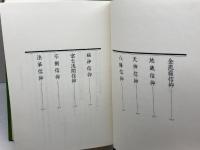 金毘羅信仰
地蔵信仰
天神信仰
八幡信仰
稲神信仰
富士浅間信仰
不動信仰
法華信仰